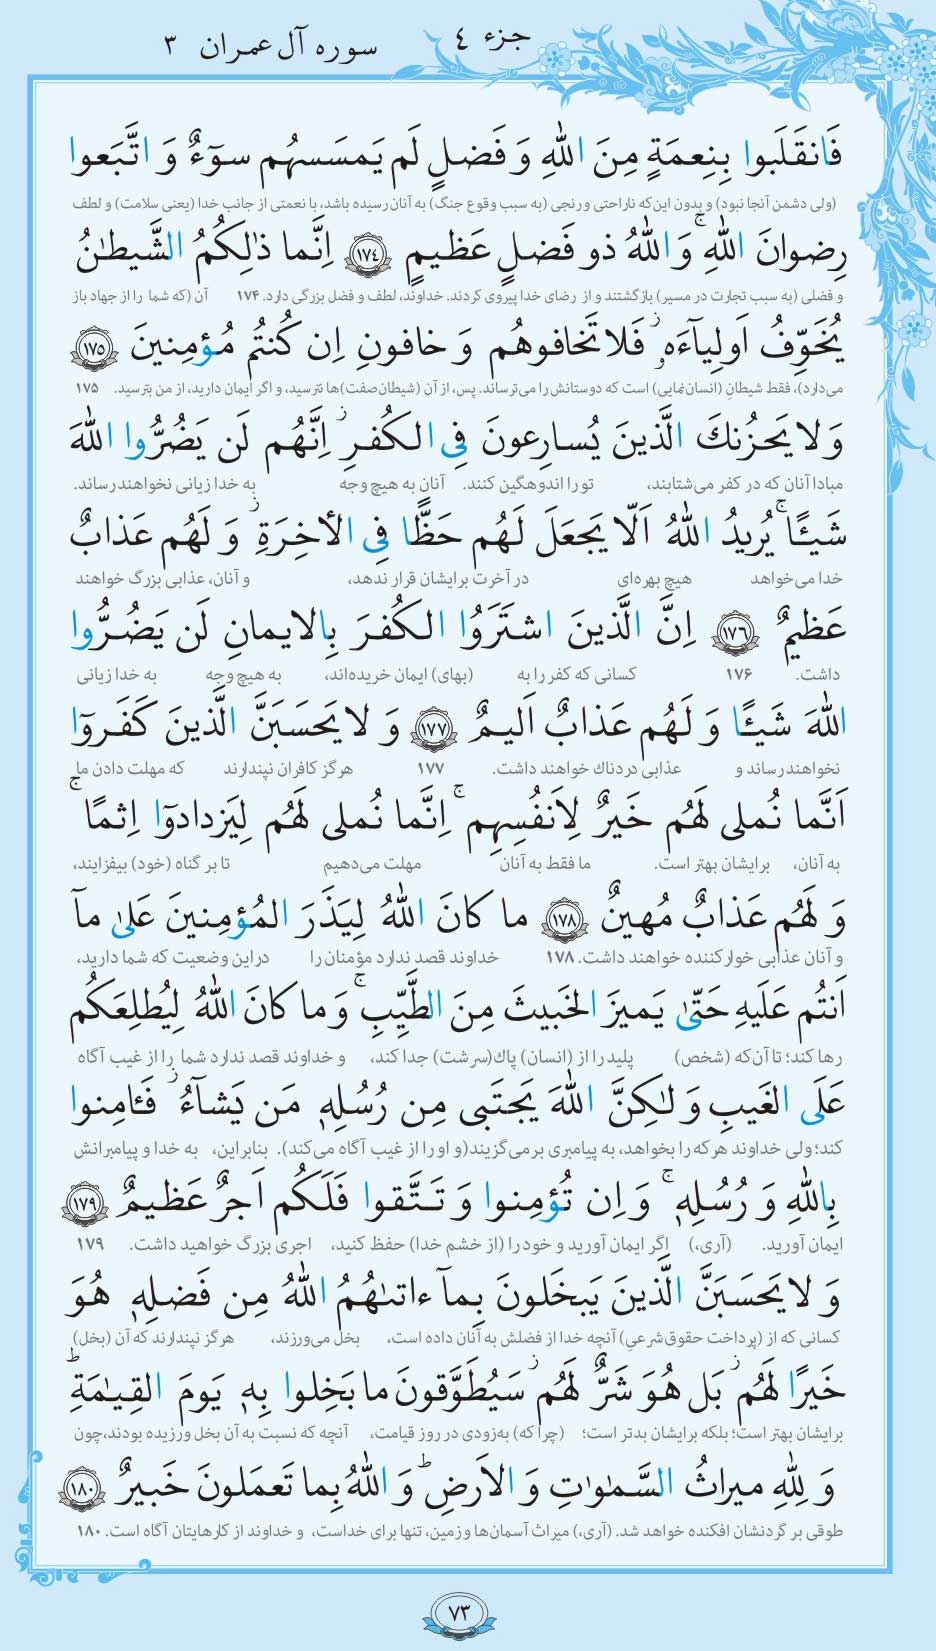 جزء ٤
سوره آل عمران ٣
فَانقَلَبوا بِنِعمَةٍ مِنَ اللّٰهِ وَ فَضلٍ لَم يَمسَسهُم سوٓءٌ وَ اتَّبَعوا
(ولی دشمن آنجا نبود) و بدون این‌که ناراحتی و رنجی (به سبب وقوع جنگ) به آنان رسیده باشد، با نعمتی از جانب خدا (یعنی سلامت) و لطف
رِضوانَ اللّٰهِ ۚ وَ اللّٰهُ ذو فَضلٍ عَظيمٍ ﴿١٧٤﴾ اِنَّما ذٰلِكُمُ الشَّيطٰنُ
و فضلی (به سبب تجارت در مسیر) بازگشتند و از رضای خدا پیروی کردند. خداوند، لطف و فضل بزرگی دارد. ۱۷۴ آن (که شما را از جهاد باز
يُخَوِّفُ اَولِيآءَهٗ فَلا تَخافوهُم وَ خافونِ اِن كُنتُم مُؤمِنينَ ﴿١٧٥﴾
می‌دارد)، فقط شیطانِ (انسان‌نمایی) است که دوستانش را می‌ترساند. پس، از آن (شیطان‌صفت)ها نترسید، و اگر ایمان دارید، از من بترسید. ۱۷۵
وَ لا يَحزُنكَ الَّذينَ يُسارِعونَ فِى الكُفرِ ۚ اِنَّهُم لَن يَضُرُّوا اللّٰهَ
مبادا آنان که در کفر می‌شتابند، تو را اندوهگین کنند. آنان به هیچ وجه به خدا زیانی نخواهند رساند.
شَيـًٔا ۚ يُريدُ اللّٰهُ اَلّا يَجعَلَ لَهُم حَظًّا فِى الاٰخِرَةِ ۖ وَ لَهُم عَذابٌ
خدا می‌خواهد هیچ بهره‌ای در آخرت برایشان قرار ندهد، و آنان، عذابی بزرگ خواهند
عَظيمٌ ﴿١٧٦﴾ اِنَّ الَّذينَ اشتَرَوُا الكُفرَ بِالايمانِ لَن يَضُرُّوا
داشت. ۱۷۶ کسانی که کفر را به (بهای) ایمان خریده‌اند، به هیچ وجه به خدا زیانی
اللّٰهَ شَيـًٔا وَ لَهُم عَذابٌ اَليمٌ ﴿١٧٧﴾ وَ لا يَحسَبَنَّ الَّذينَ كَفَروٓا
نخواهند رساند و عذابی دردناک خواهند داشت. ۱۷۷ هرگز کافران نپندارند که مهلت دادن ما
اَنَّما نُملى لَهُم خَيرٌ لِاَنفُسِهِم ۚ اِنَّما نُملى لَهُم لِيَزدادوٓا اِثمًا ۚ
به آنان، برایشان بهتر است. ما فقط به آنان مهلت می‌دهیم تا بر گناه (خود) بیفزایند،
وَ لَهُم عَذابٌ مُهينٌ ﴿١٧٨﴾ ما كانَ اللّٰهُ لِيَذَرَ المُؤمِنينَ عَلىٰ مآ
و آنان عذابی خوارکننده خواهند داشت. ۱۷۸ خداوند قصد ندارد مؤمنان را در این وضعیت که شما دارید،
اَنتُم عَلَيهِ حَتّىٰ يَميزَ الخَبيثَ مِنَ الطَّيِّبِ ۚ وَ ما كانَ اللّٰهُ لِيُطلِعَكُم
رها کند؛ تا آن‌که (شخص) پلید را از (انسان) پاک(سرشت) جدا کند، و خداوند قصد ندارد شما را از غیب آگاه
عَلَى الغَيبِ وَ لٰكِنَّ اللّٰهَ يَجتَبى مِن رُسُلِهٖ مَن يَشآءُ ۖ فَـٔامِنوا
کند؛ ولی خداوند هر که را بخواهد، به پیامبری برمی‌گزیند (و او را از غیب آگاه می‌کند). بنابراین، به خدا و پیامبرانش
بِاللّٰهِ وَ رُسُلِهٖ ۚ وَ اِن تُؤمِنوا وَ تَتَّقوا فَلَكُم اَجرٌ عَظيمٌ ﴿١٧٩﴾
ایمان آورید. (آری،) اگر ایمان آورید و خود را (از خشم خدا) حفظ کنید، اجری بزرگ خواهید داشت. ۱۷۹
وَ لا يَحسَبَنَّ الَّذينَ يَبخَلونَ بِمآ ءاتىٰهُمُ اللّٰهُ مِن فَضلِهٖ هُوَ
کسانی که از (پرداخت حقوق شرعیِ) آنچه خدا از فضلش به آنان داده است، بخل می‌ورزند، هرگز نپندارند که آن (بخل)
خَيرًا لَهُم ۖ بَل هُوَ شَرٌّ لَهُم ۖ سَيُطَوَّقونَ ما بَخِلوا بِهٖ يَومَ القِيٰمَةِ ۗ
برایشان بهتر است؛ بلکه برایشان بدتر است؛ (چرا که) به‌زودی در روز قیامت، آنچه که نسبت به آن بخل ورزیده بودند، چون
وَ لِلّٰهِ ميراثُ السَّمٰوٰتِ وَ الاَرضِ ۗ وَ اللّٰهُ بِما تَعمَلونَ خَبيرٌ ﴿١٨٠﴾
طوقی بر گردنشان افکنده خواهد شد. (آری،) میراث آسمان‌ها و زمین، تنها برای خداست، و خداوند از کارهایتان آگاه است. ۱۸۰
٧٣